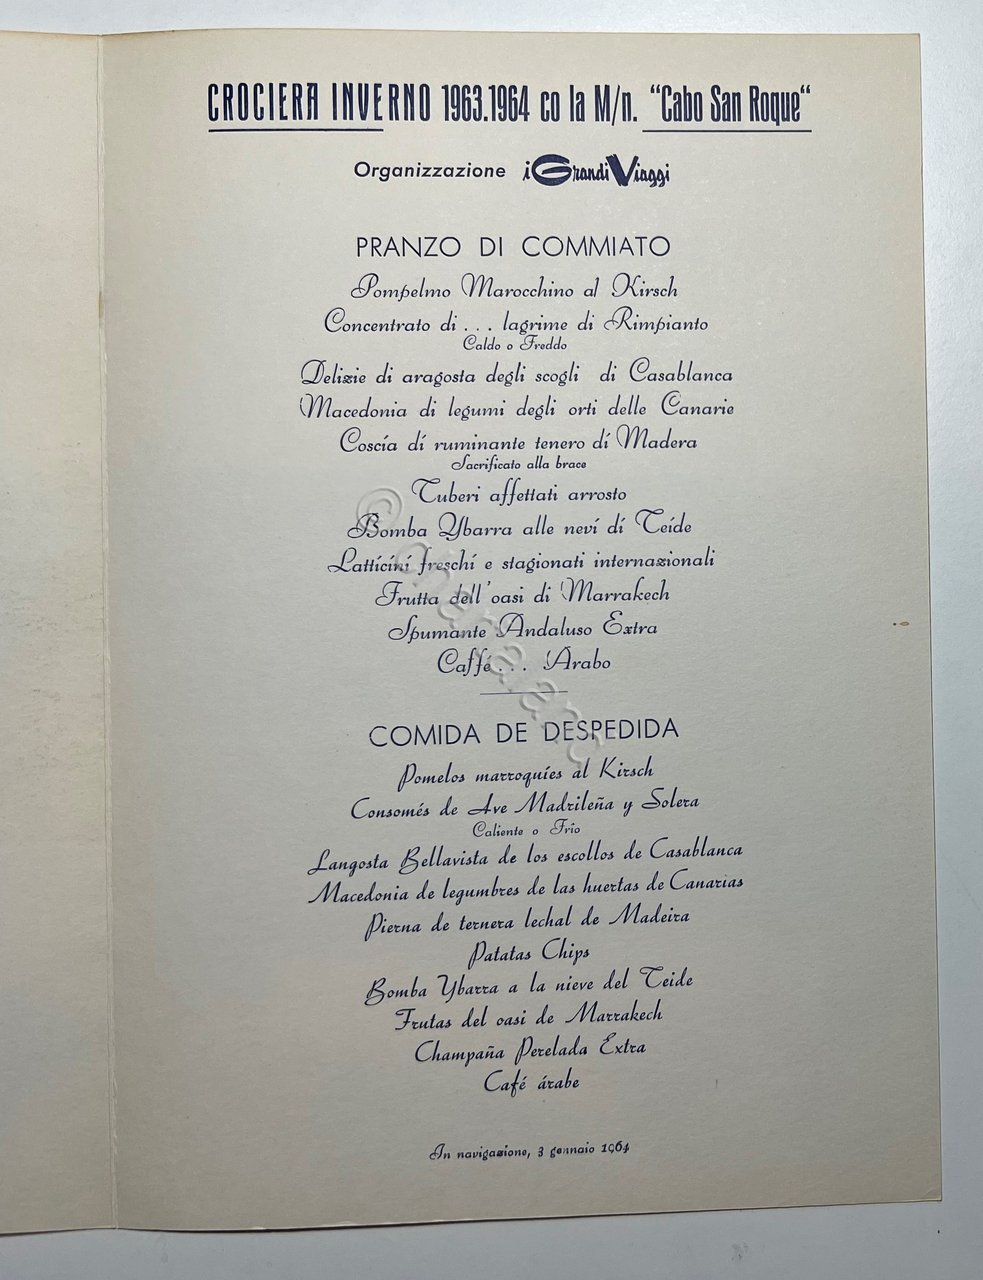 CROCIERA INVERNO 1963.1964 co la M/n. "Cabo San Roque"
Organizzazione i Grandi Viaggi
PRANZO DI COMMIATO
Pompelmo Marocchino al Kirsch
Concentrato di . . . lagrime di Rimpianto
Caldo o Freddo
Delizie di aragosta degli scogli di Casablanca
Macedonia di legumi degli orti delle Canarie
Coscía dí ruminante tenero dí Madera
Sacrificato alla brace
Tuberi affettati arrosto
Bomba Ybarra alle neví dí Teíde
Latticíní freschí e stagionati internazionali
Frutta dell'oasi di Marrakech
Spumante Andaluso Extra
Caffé . . . Arabo
COMIDA DE DESPEDIDA
Pomelos marroquíes al Kirsch
Consomés de Ave Madrileña y Solera
Caliente o Frío
Langosta Bellavista de los escollos de Casablanca
Macedonia de legumbres de las huertas de Canarias
Pierna de ternera lechal de Madeira
Patatas Chips
Bomba Ybarra a la nieve del Teide
Frutas del oasi de Marrakech
Champaña Perelada Extra
Café árabe
In navigazione, 3 gennaio 1964